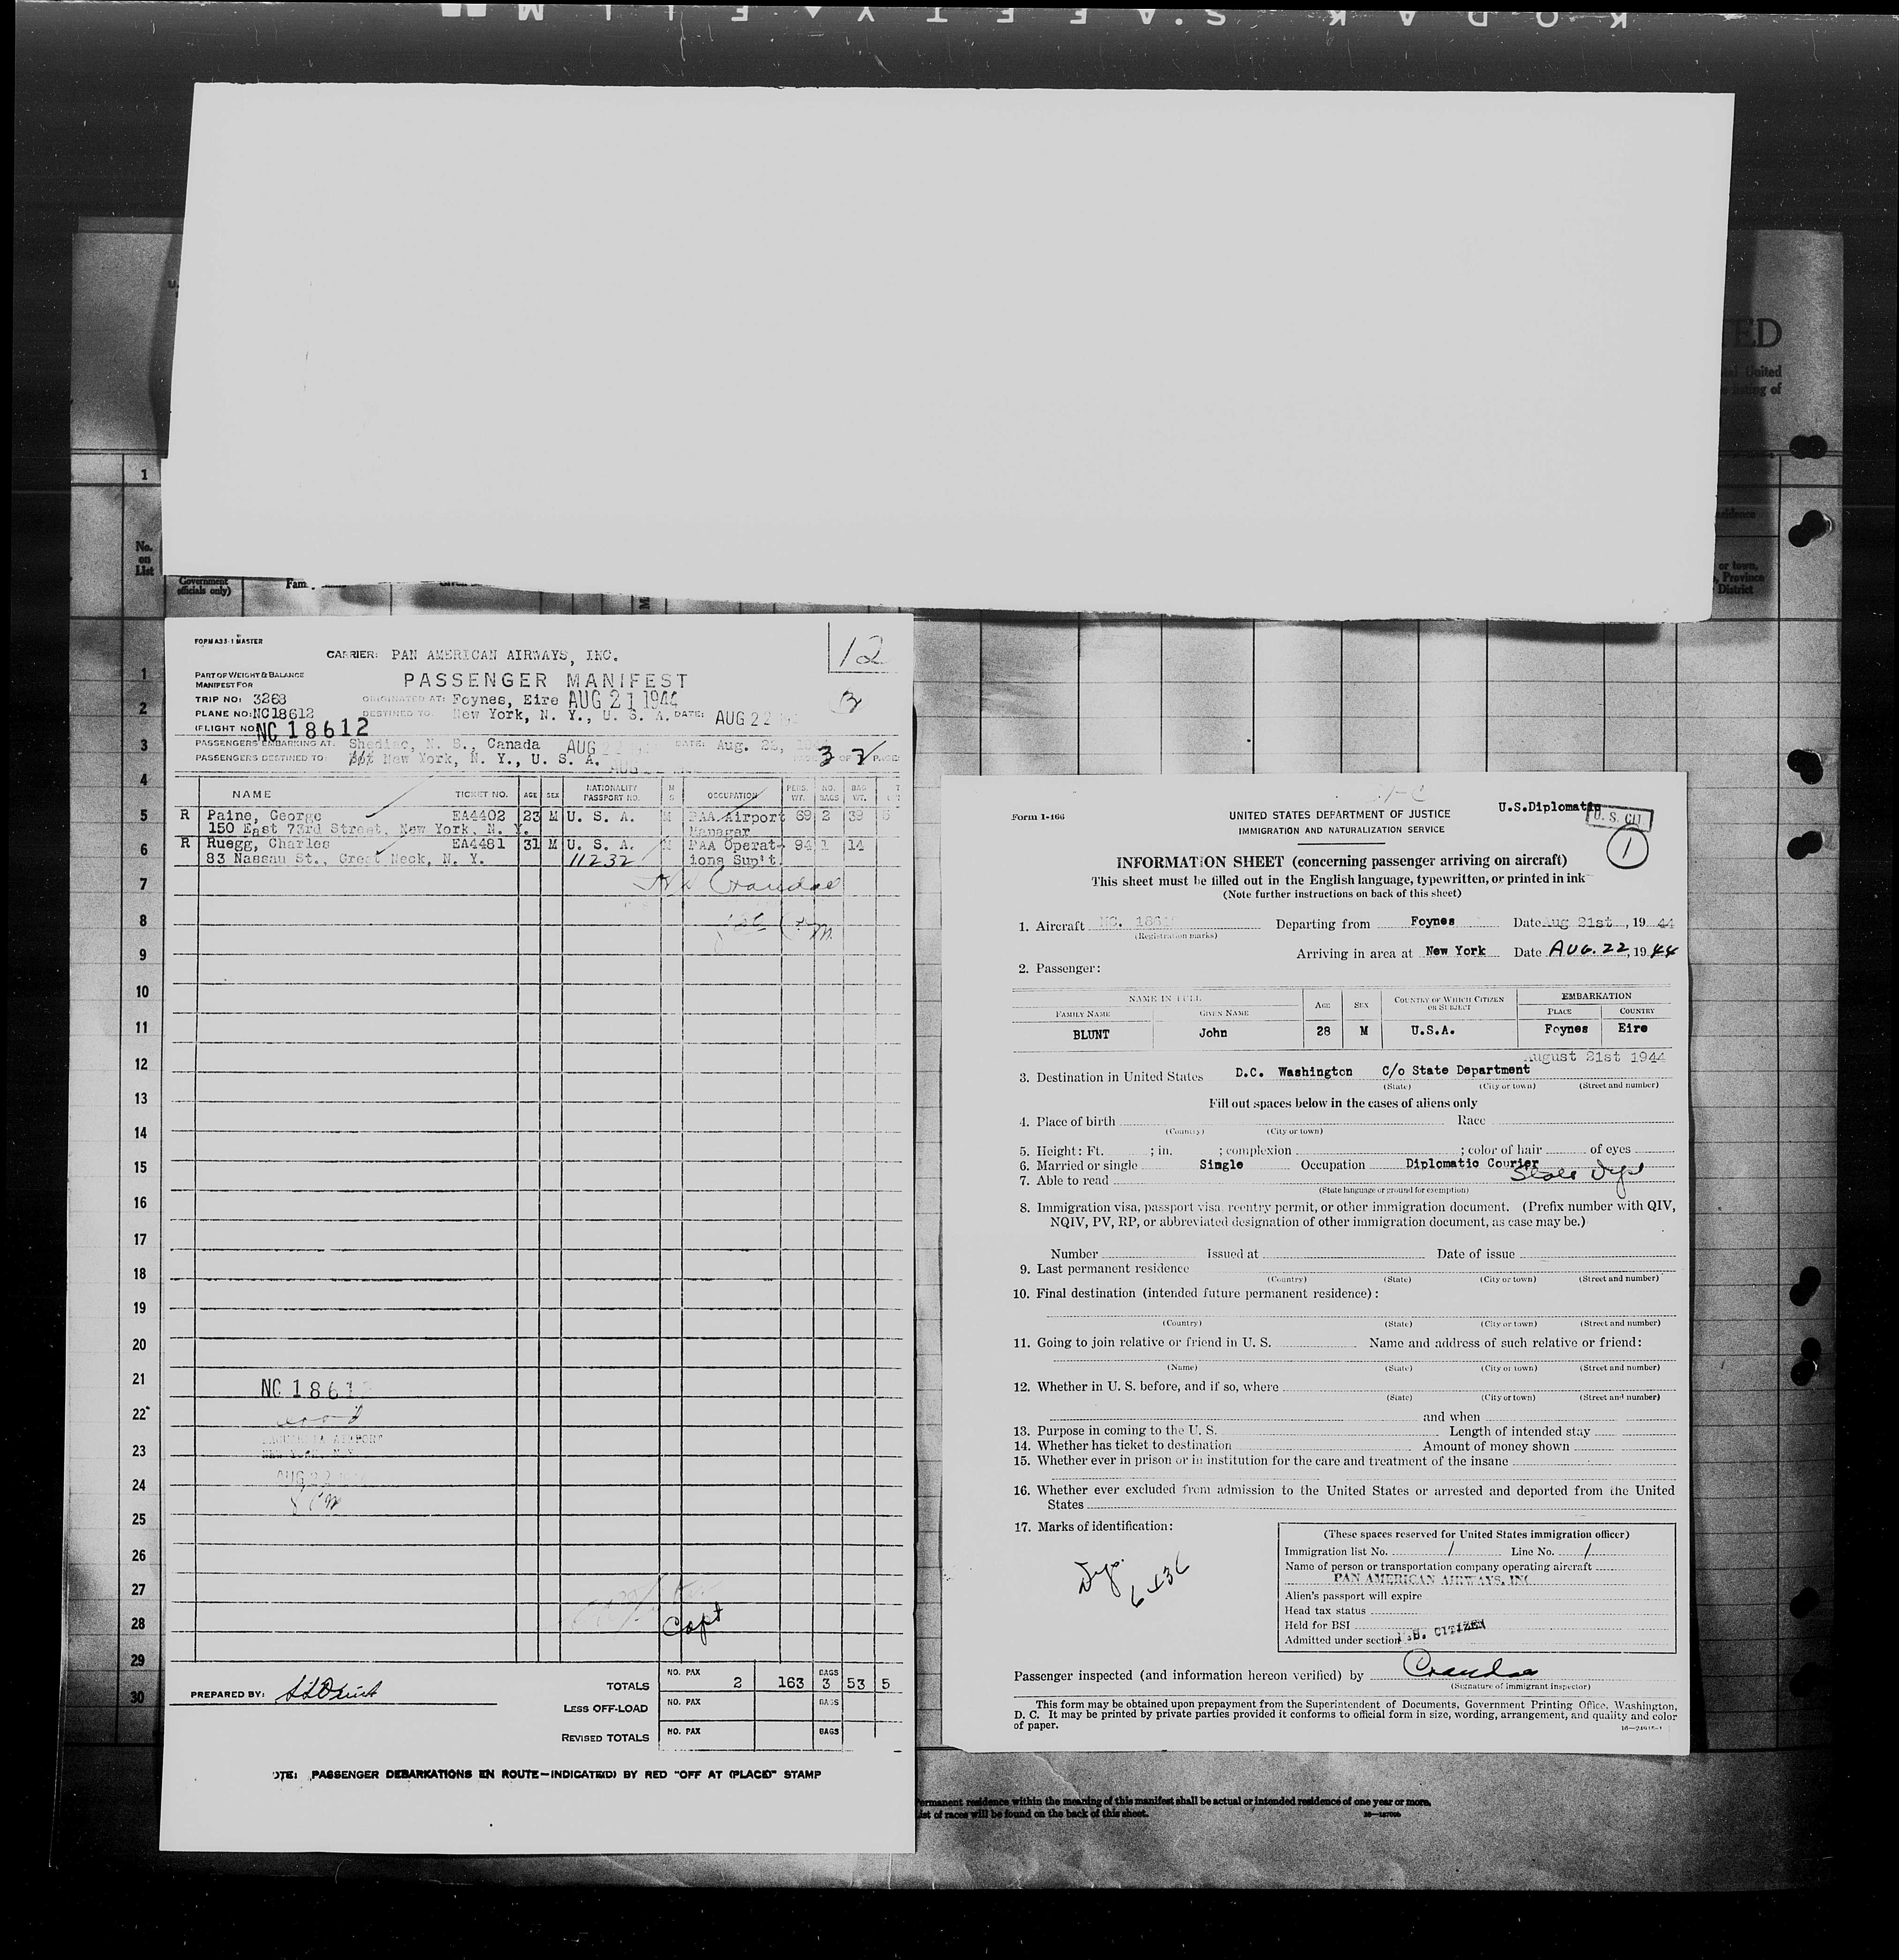 KODAK SAFETY FILM
ED
United
listing of
1
No. on List
Government officials only)
Fam
or town,
Province
District
FORM A33-1 MASTER
12
CARRIER: PAN AMERICAN AIRWAYS, INC.
PART OF WEIGHT & BALANCE
MANIFEST FOR
PASSENGER MANIFEST
TRIP NO: 3263
ORIGINATED AT: Foynes, Eire AUG 21 1944
PLANE NO: NC18612
DESTINED TO: New York, N. Y., U. S. A. DATE: AUG 22
(FLIGHT NO) NC 18612
PASSENGERS EMBARKING AT: Shediac, N. B., Canada AUG DATE: Aug.
PASSENGERS DESTINED TO: New York, N. Y., U. S. A. AUG 3 OF
NAME TICKET NO. AGE SEX NATIONALITY PASSPORT NO. M S OCCUPATION PERS. WT. NO. BAGS BAG WT.
R Paine, George EA4402 23 M U. S. A. M PAA Airport 69 2 39 5
150 East 73rd Street, New York, N. Y. Manager
R Ruegg, Charles EA4481 31 M U. S. A. M PAA Operat- 94 1 14
83 Nassau St., Great Neck, N. Y. 11232 ions Sup't.
Crandae
1
2
3
4
5
6
7
8
9
10
11
12
13
14
15
16
17
18
19
20
21
22
23
24
25
26
27
28
29
30
NC 1861
AIRPORT
NEW YORK, N.Y.
AUG 22
Capt
TOTALS NO. PAX 2 163 BAGS 3 53 5
PREPARED BY:
LESS OFF-LOAD NO. PAX BAGS
REVISED TOTALS NO. PAX BAGS
OTE: PASSENGER DEBARKATIONS EN ROUTE—INDICATED BY RED "OFF AT (PLACE)" STAMP
Form I-466
UNITED STATES DEPARTMENT OF JUSTICE
U.S.Diplomatic
U. S. CIT
IMMIGRATION AND NATURALIZATION SERVICE
1
INFORMATION SHEET (concerning passenger arriving on aircraft)
This sheet must be filled out in the English language, typewritten, or printed in ink
(Note further instructions on back of this sheet)
1. Aircraft NC. 1861 Departing from Foynes Date Aug 21st, 19 44
(Registration marks)
Arriving in area at New York Date AUG. 22, 19 44
2. Passenger:
NAME IN FULL AGE SEX COUNTRY OF WHICH CITIZEN OR SUBJECT EMBARKATION
FAMILY NAME GIVEN NAME PLACE COUNTRY
BLUNT John 28 M U.S.A. Foynes Eire
August 21st 1944
3. Destination in United States D.C. Washington C/o State Department
(State) (City or town) (Street and number)
Fill out spaces below in the cases of aliens only
4. Place of birth Race
(Country) (City or town)
5. Height: Ft. ; in. ; complexion ; color of hair of eyes
6. Married or single Single Occupation Diplomatic Courier
State Dept
7. Able to read
(State language or ground for exemption)
8. Immigration visa, passport visa, reentry permit, or other immigration document. (Prefix number with QIV,
NQIV, PV, RP, or abbreviated designation of other immigration document, as case may be.)
Number Issued at Date of issue
9. Last permanent residence
(Country) (State) (City or town) (Street and number)
10. Final destination (intended future permanent residence):
(Country) (State) (City or town) (Street and number)
11. Going to join relative or friend in U. S. Name and address of such relative or friend:
(Name) (State) (City or town) (Street and number)
12. Whether in U. S. before, and if so, where
(State) (City or town) (Street and number)
and when
13. Purpose in coming to the U. S. Length of intended stay
14. Whether has ticket to destination Amount of money shown
15. Whether ever in prison or in institution for the care and treatment of the insane
16. Whether ever excluded from admission to the United States or arrested and deported from the United
States
17. Marks of identification:
Dip. 6436
(These spaces reserved for United States immigration officer)
Immigration list No. 1 Line No. 1
Name of person or transportation company operating aircraft
PAN AMERICAN AIRWAYS, INC
Alien's passport will expire
Head tax status
Held for BSI
Admitted under section U.S. CITIZEN
Passenger inspected (and information hereon verified) by Crandae
(Signature of immigrant inspector)
This form may be obtained upon prepayment from the Superintendent of Documents, Government Printing Office, Washington,
D. C. It may be printed by private parties provided it conforms to official form in size, wording, arrangement, and quality and color
of paper.
ermanent residence within the meaning of this manifest shall be actual or intended residence of one year or more.
ist of races will be found on the back of this sheet.